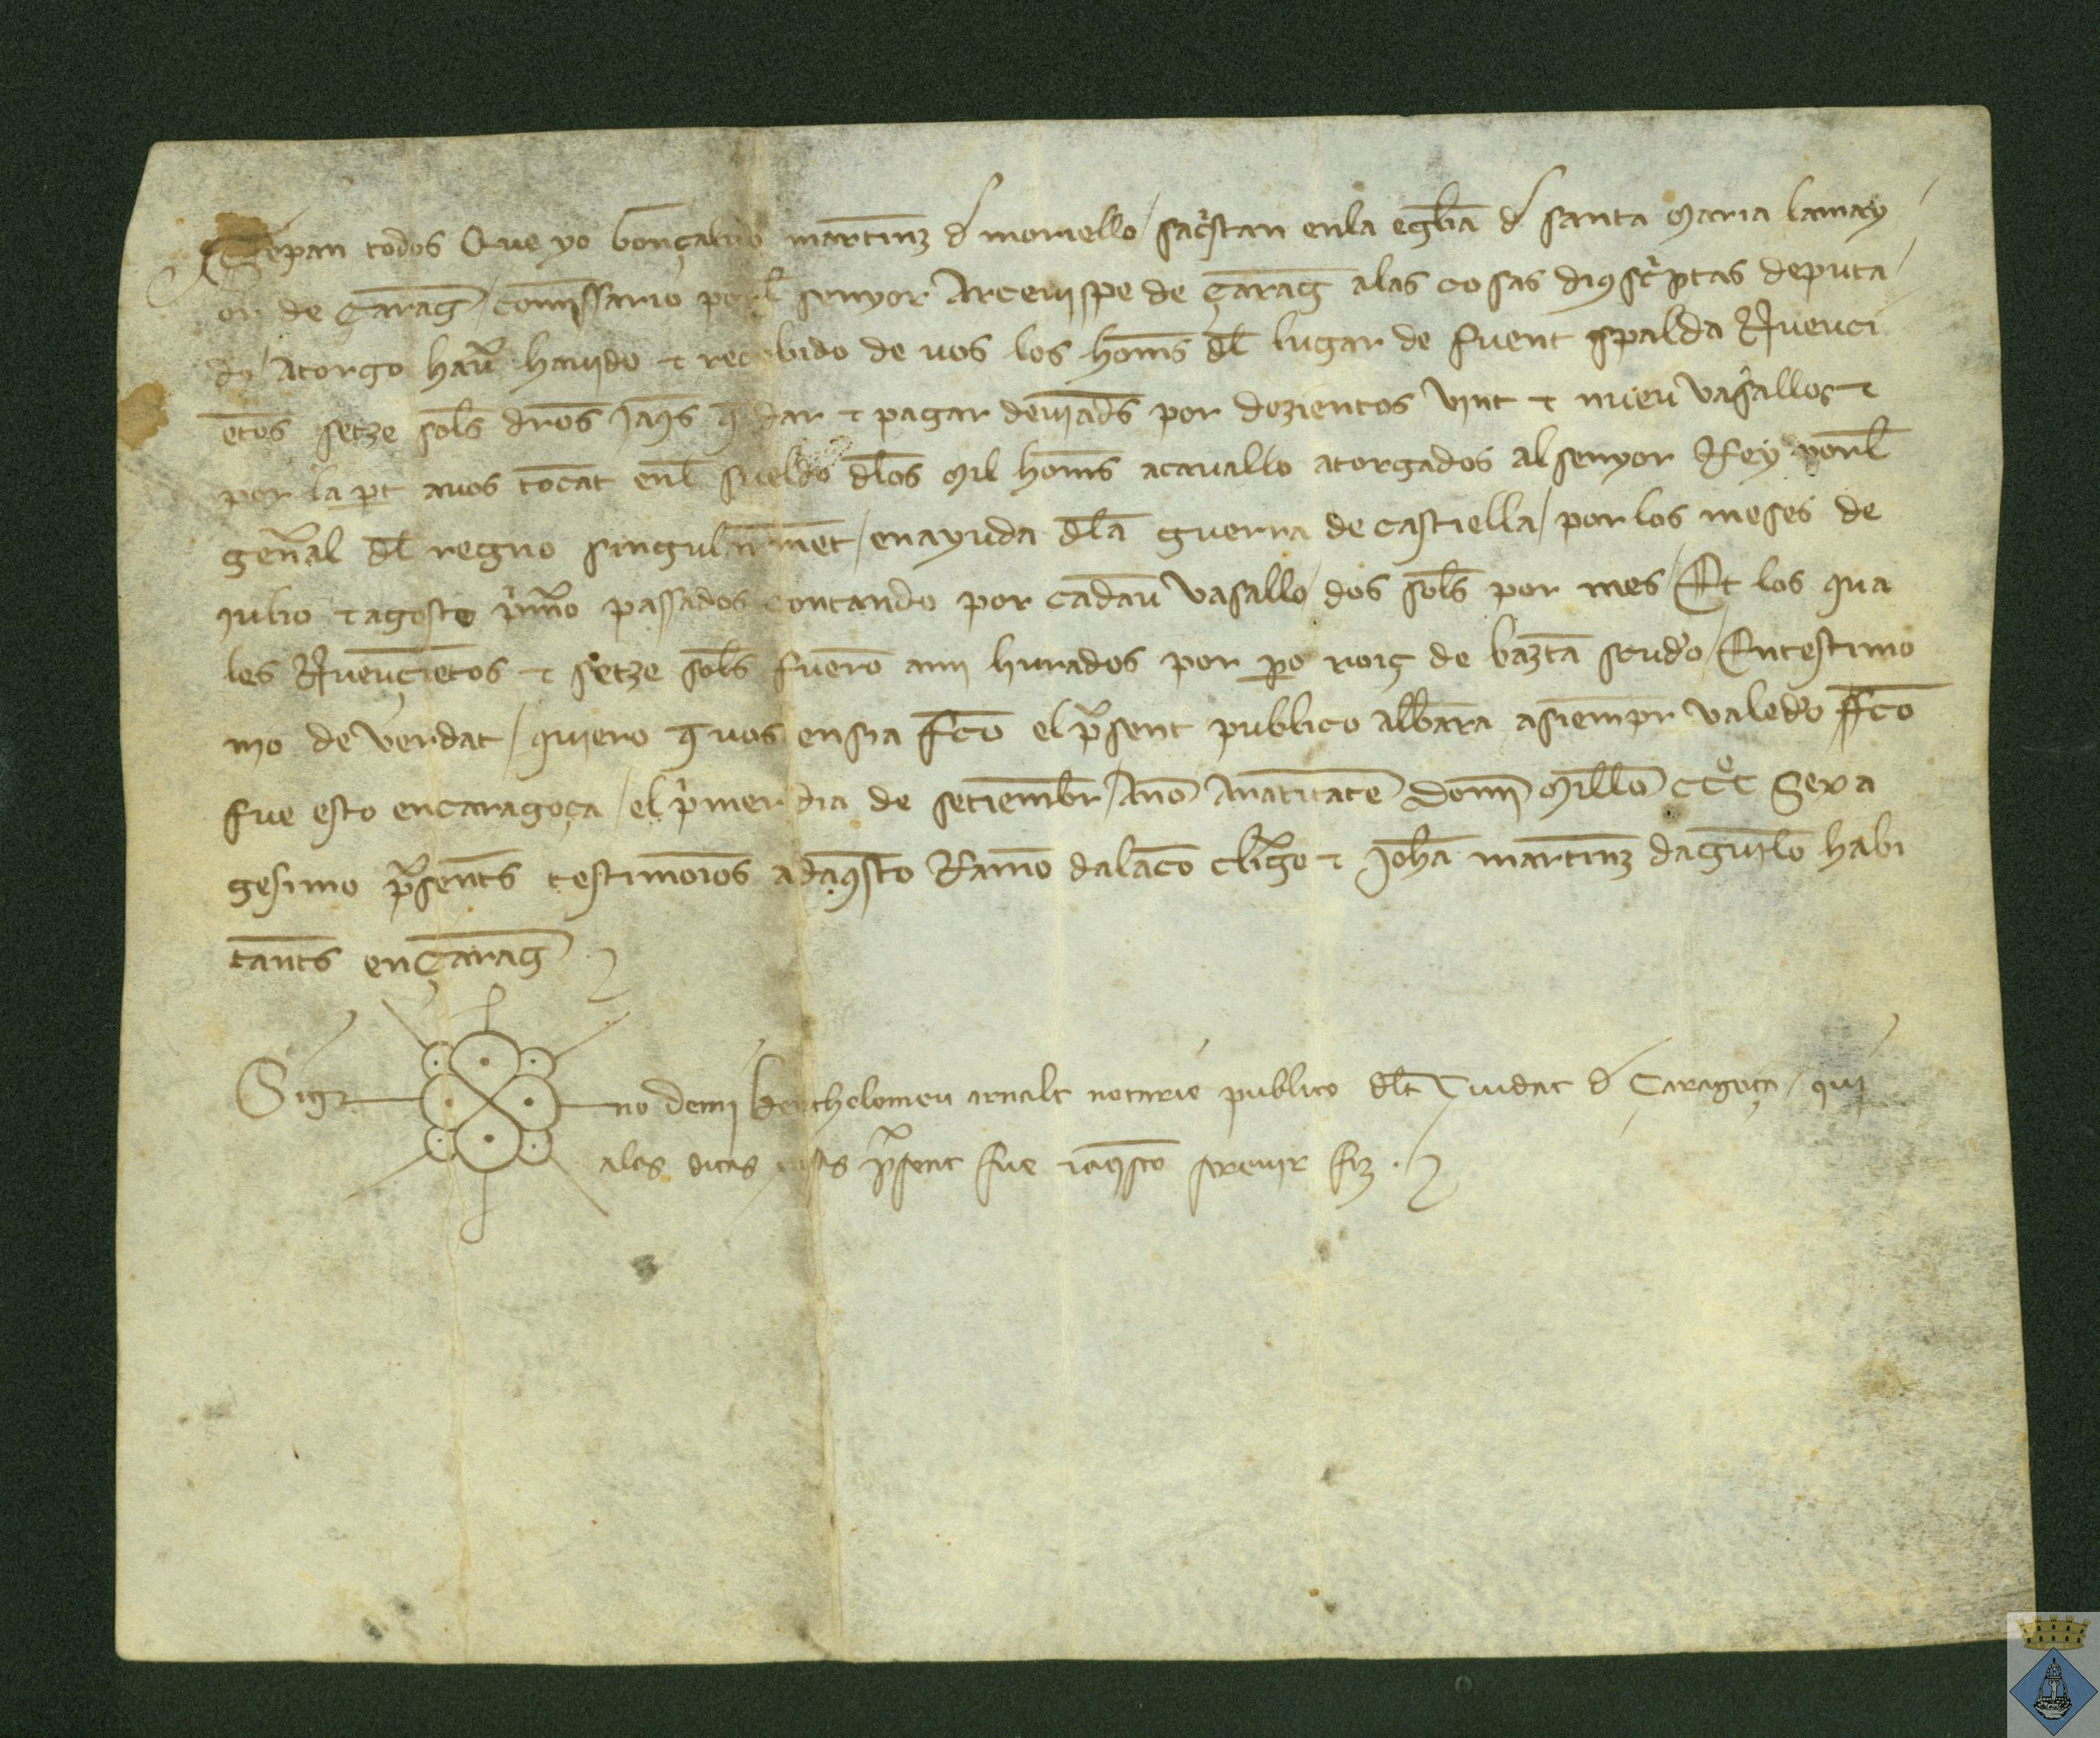 Sepan todos Que yo Gonçaluo martinz d moriello / sacristan enla eglia d santa Maria lamay
or de Çarag / comissario porl senyor Arceuispe de Çarag alas cosas dius scriptas deputa
do / Atorgo hauer hauido et recebido de uos los homs dl lugar de fuent spalda Nueuci
etos setze sols dros jaqs q dar et pagar deuiads por dozientos vint et nueu vasallos et
por la pt auos tocat enl sueldo dlos Mil homs acauallo atorgados al senyor Rey porl
general dl regno singularment / en ayuda dla guerra de castiella / por los meses de
julio et agosto primero passados contando por cadau vasallo / dos sols por mes / Et los qua
les Nueucietos et setze sols fuero ami liurados por po roiç de bazta scudo / En testimo
nio de verdat / quiero q uos ensia fco el present publico albara asiempr valedo ffco
fue esto en caragoça / el primer dia de setiembr / Ano Anatiuitate Domi Millo CCC Sexa
gesimo presents testimonios adaqsto Ramo dalaco clerigo et Joha martinz daguilo habi
tants en Çarag
Sig no demi Bertholomeu arnalt notario publico dla Ciudat d Caragoça / qui
alas ditas cosas present fue et aqsto screuir fiz